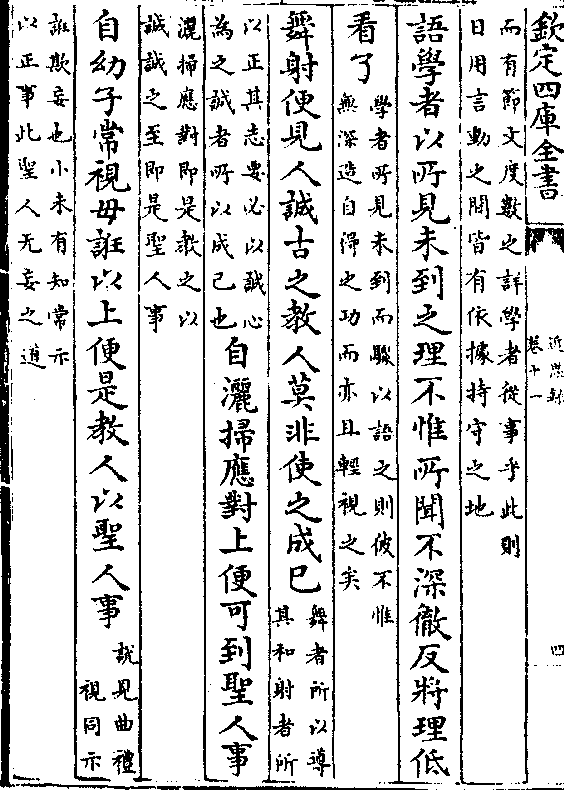 欽定四庫全書
近思錄
卷十一
四
而有節文度數之詳學者從事乎此則
日用言動之間皆有依據持守之地
語學者以所見未到之理不惟所聞不深徹反將理低
看了
學者所見未到而驟以語之則彼不惟
無深造自得之功而亦且輕視之矣
舞射便見人誠古之教人莫非使之成已
舞者所以導
其和射者所
以正其志要必以誠心
為之誠者所以成已也
自灑掃應對上便可到聖人事
灑掃應對即是教之以
誠誠之至即是聖人事
自幼子常視毋誑以上便是教人以聖人事
說見曲禮
視同示
誑欺妄也小未有知常示
以正事此聖人无妄之道